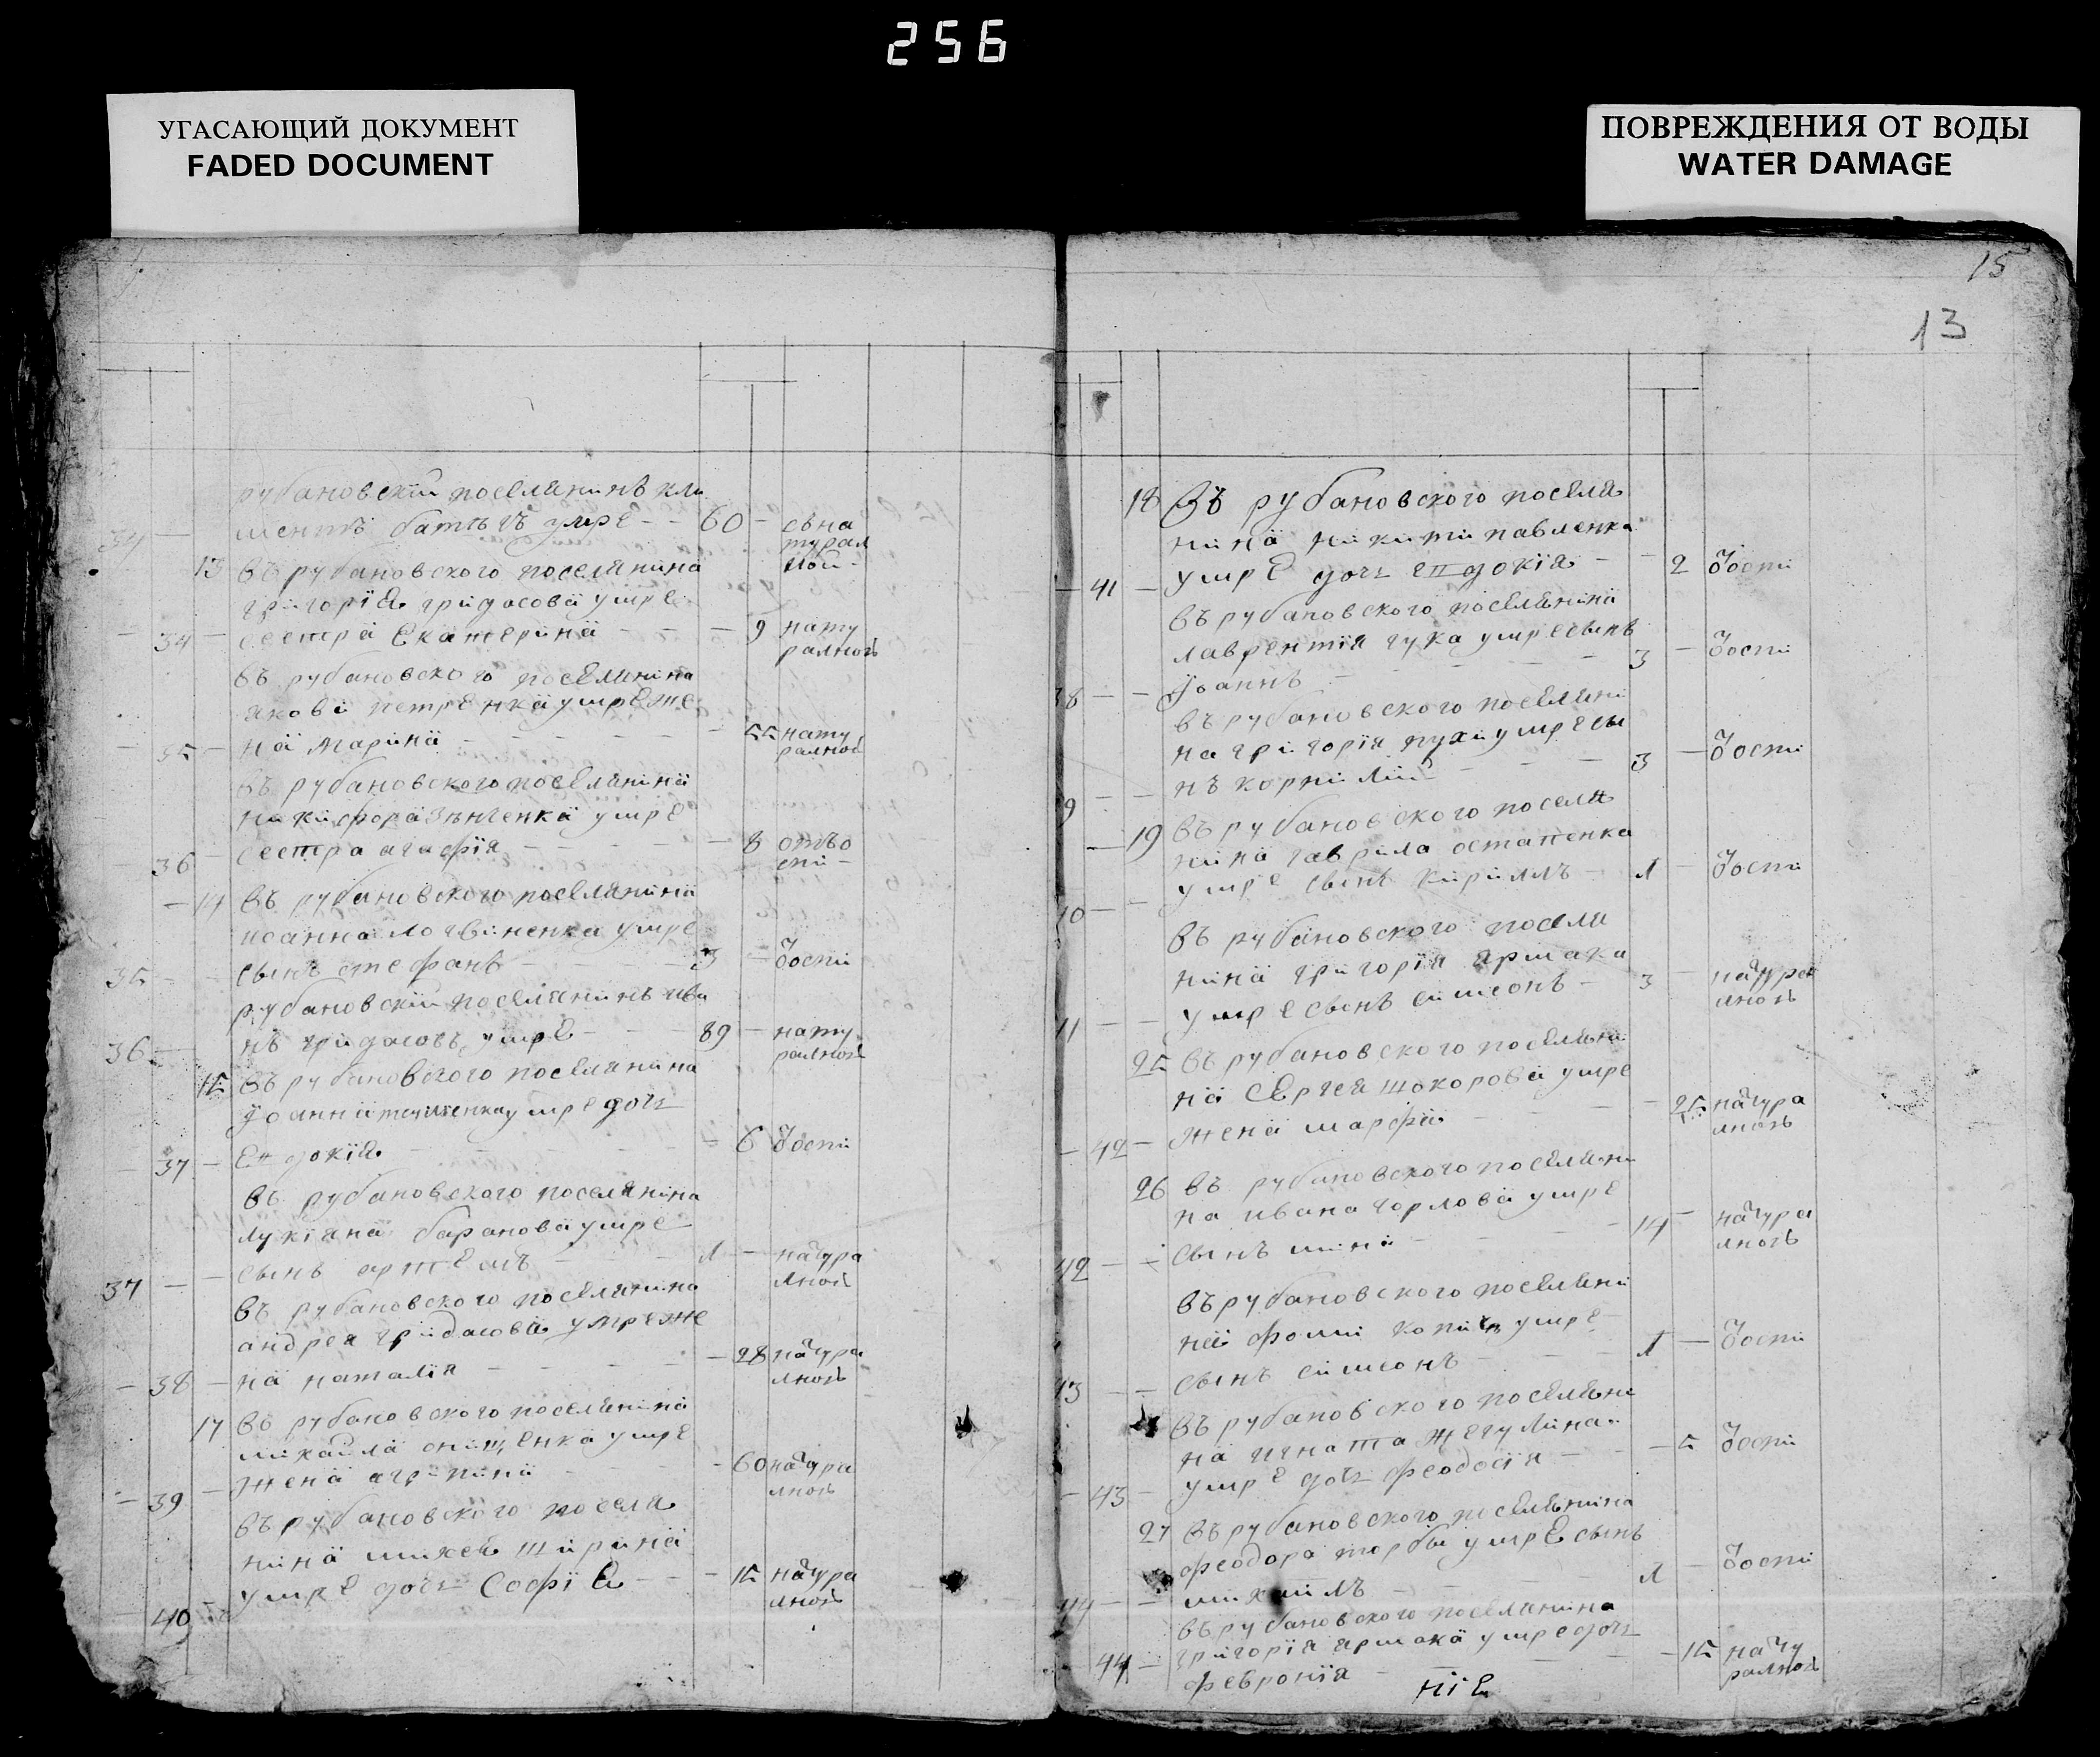 256
УГАСАЮЩИЙ ДОКУМЕНТ
FADED DOCUMENT
ПОВРЕЖДЕНИЯ ОТ ВОДЫ
WATER DAMAGE
15
13
рубановскїй поселянинъ кли
ментъ умре - - 60 -
13 въ рубановского поселянина
григорїя гридасова умре
34 - сестра Екатерина - - - 9 нату
ралной
въ рубановского поселянина
якова петренка умре же
35 - на марина - - - 55 нату
ралной
въ рубановского поселянина
никифора умре
36 - сестра агафїя - - - 8 отъво
спи -
14 въ рубановского поселянина
иоанна логвиненка умре
35 - - сынъ стефанъ - - 3 - воспи
рубановскїй поселянинъ ива
36 - нъ гридасовъ умре - - 89 - нату
ралной
15 въ рубановского поселянина
їоанна умре дочь
37 - Евдокїя - - - 6 воспи
въ рубановского поселянина
лукїяна баранова умре
37 - - сынъ артемъ - - 1 - натура
лной
въ рубановского поселянина
андрея гридасова умре же
38 - на наталїя - - - 28 натура
лной
17 въ рубановского поселянина
михайла онищенка умре
39 - жена агрипина - - 60 натура
лной
въ рубановского поселя
нина михея ширина
40 - умре дочь Софїя - - 15 натура
лной
18 Въ рубановского поселя
нина никити павленка
41 - умре дочь евдокїя - - 2 воспи
въ рубановского поселянина
лаврентїя гука умре сынъ
38 - - їоаннъ - - - 3 - воспи
въ рубановского поселяни
на григорїя пухи умре сы
9 - - нъ корнилїй - - - 3 - воспи
19 въ рубановского поселя
нина гаврила остапенка
10 - - умре сынъ кирилъ - 1 - воспи
въ рубановского поселя
нина григорїя ярмака
11 - - умре сынъ симеонъ - 3 - натура
лной
25 въ рубановского поселяни
на Сергея шокорова умре
42 - жена марфа - - - 25 натура
лной
26 въ рубановского поселяни
на ивана горлова умре
42 - - сынъ мина - - - 14 - натура
лной
въ рубановского поселяни
на фоми умре
13 - - сынъ симеонъ - - 1 - воспи
въ рубановского поселяни
на игната жегулина
43 - умре дочь феодосїя - - 5 воспи
27 въ рубановского поселянина
феодора торби умре сынъ
44 - - михаилъ - - - 1 - воспи
въ рубановского поселянина
григорїя ярмака умре дочь
44 - феВронїя - - - 15 нату
ралной
нїе